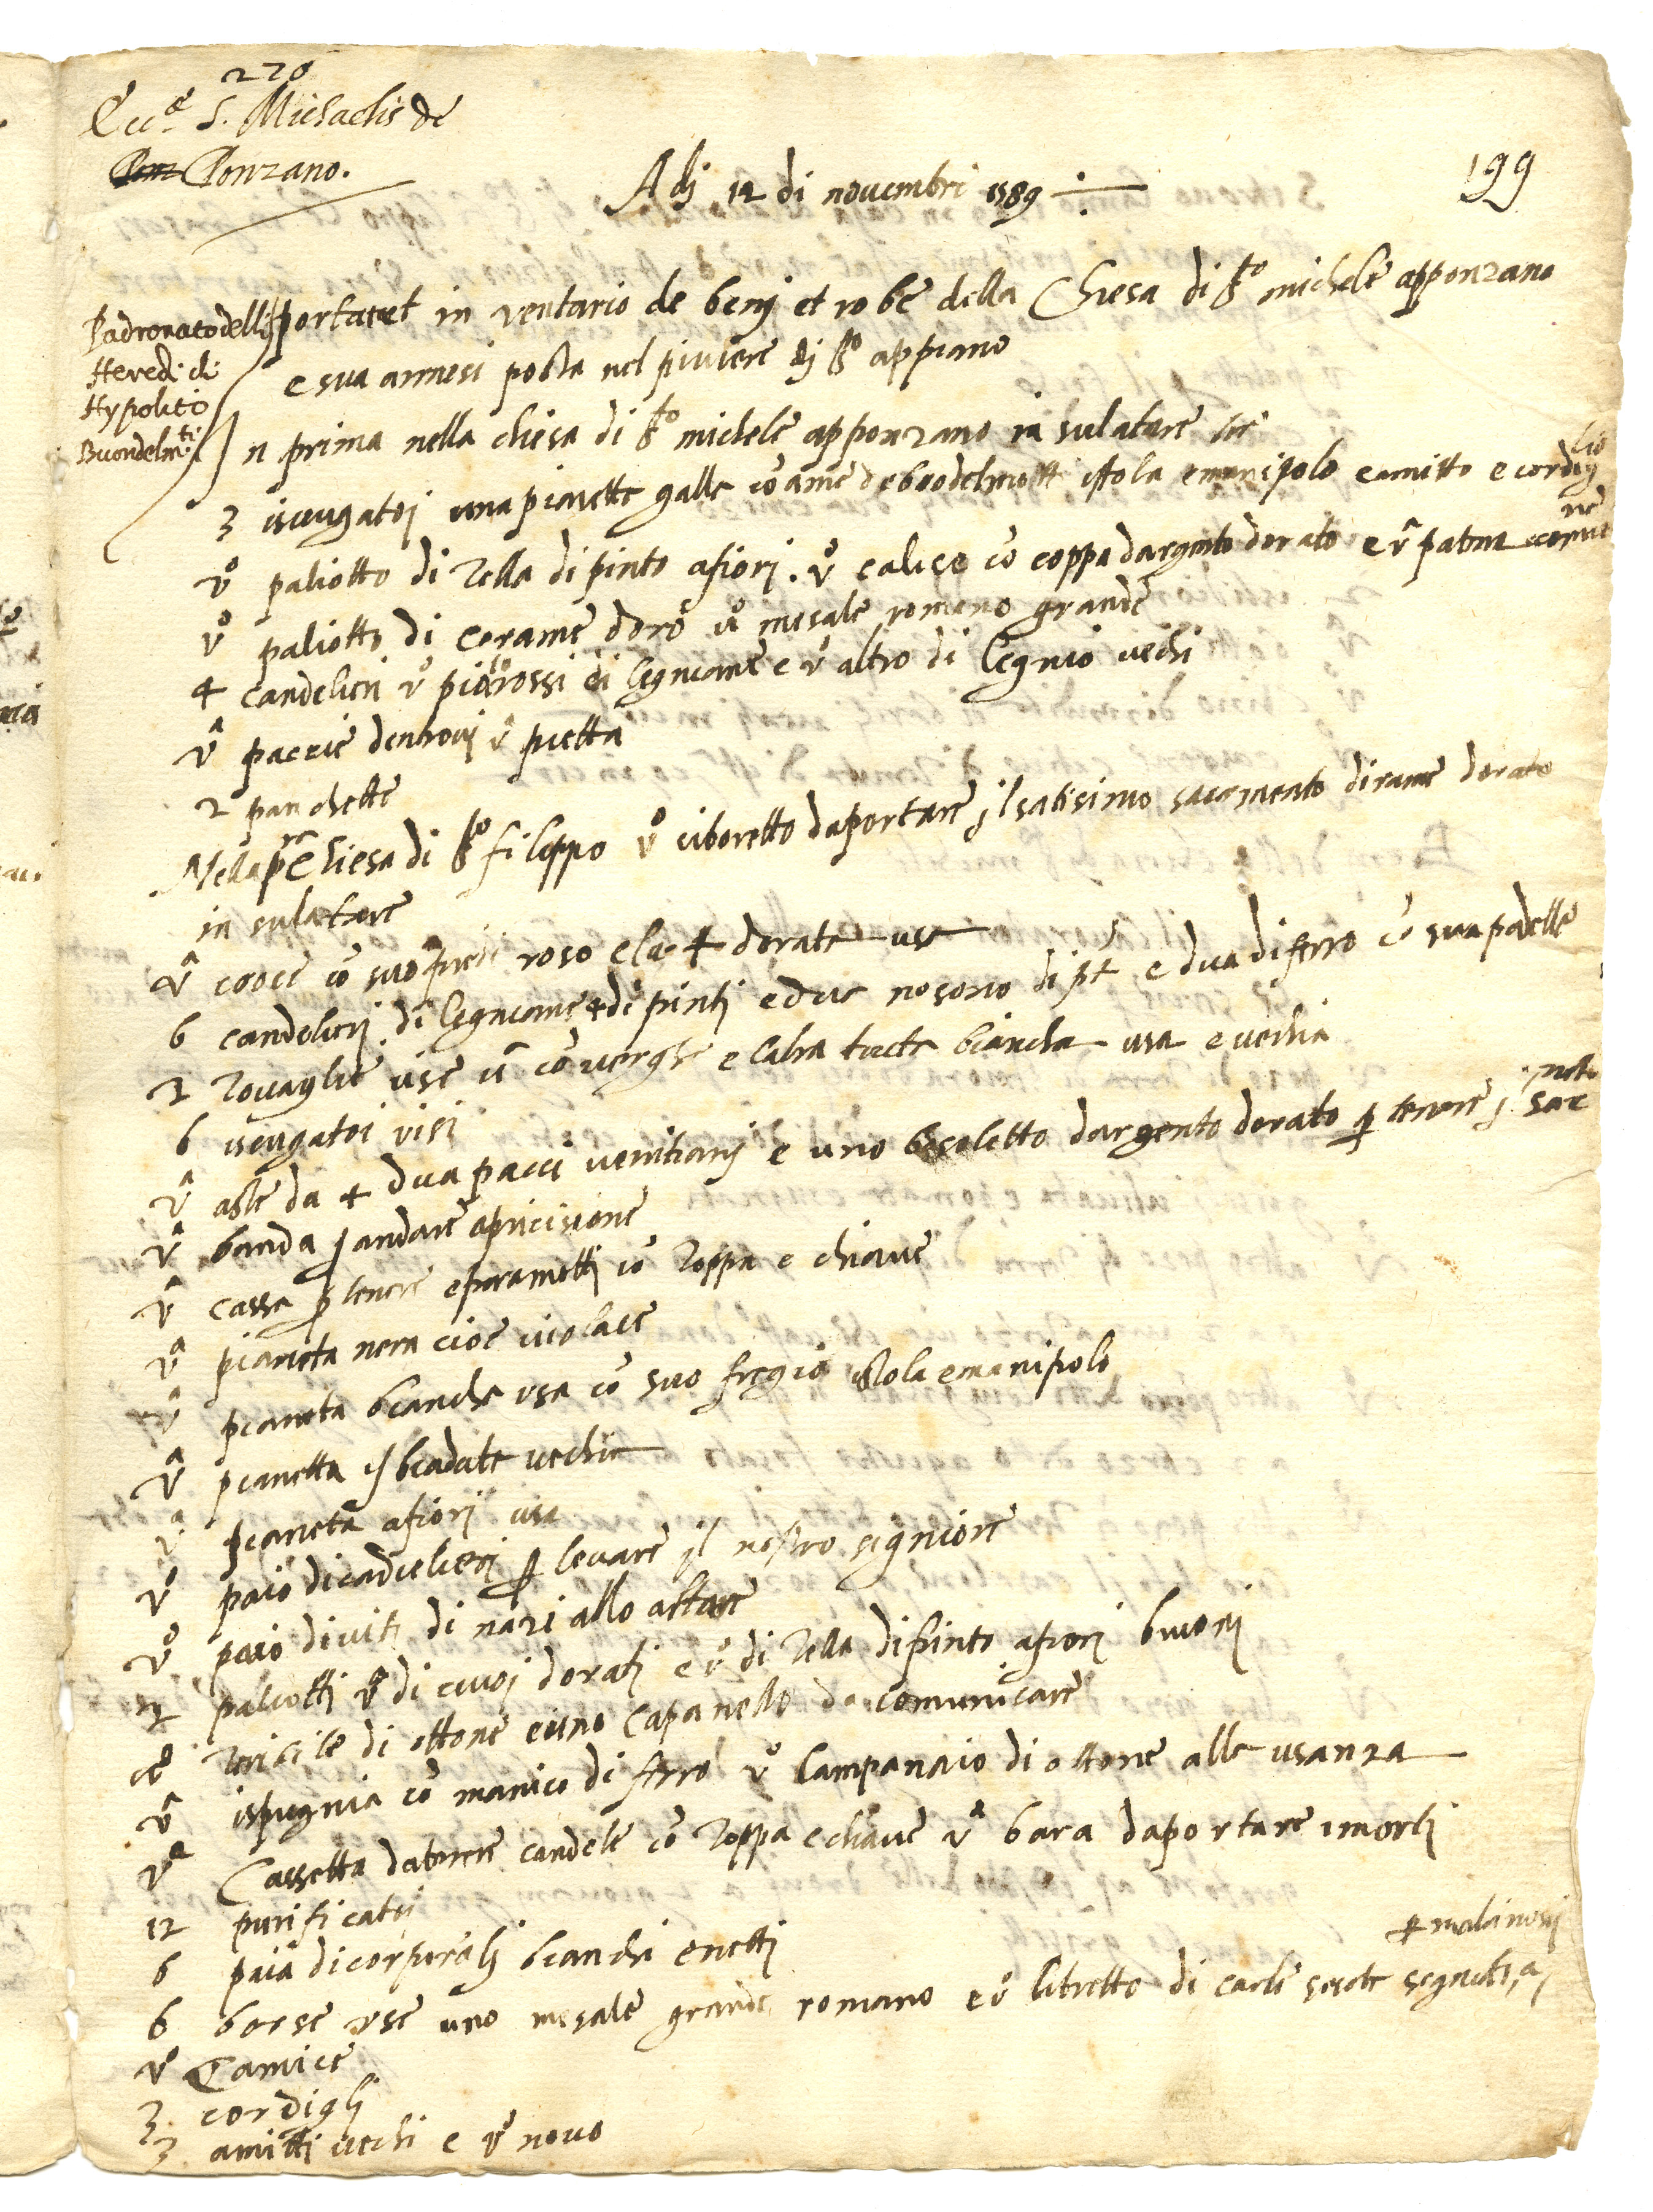 220
Ecc.ª S. Michaelis de
Ponz Ponzano.
199
Adj 12 di novembri 1589
Padronato delli
Heredi di
Hypolito
Buondelm.ti
portaret in ventario de benj et robe della Chiesa di s.to michele apponzano
e sua arnesi posta nel piviere dj s.to appiano
n prima nella chiesa di s.to michele apponzano in sulatare
3 isciugatoj una pianetta galla cō arme istola emanipolo eamitto e cordiglio
vº paliotto di tella dipinto afiorj. vº calice cō coppa dargento dorato e vª patena
vº paliotto di corame doro vº mesale romano grande
4 candelieri vº di legniame e vº altro di legnio vechi
vª pacie dentrovj vª pietta
2 panchette
Nella chiesa di s.to filippo vº ciboretto daportare jl satisimo sacramento dirame dorato
in sulaltare
vª croce cō suo piedi roso ela dorata usa
6 candelierj di legniame 4 dipinti edue nosono dipti e dua di ferro cō sua padelle
2 tovaglie use vª cō verghe e laltra tutta biancha usa e vechia
6 isciugatoi visi
vª aste da 4 dua pacci venitianj e uno bosoletto dargento dorato p tenere j sac
vª banda p andare apricisione
vª cassa p tenere eparamettj cō toppa e chiave
vª pianeta nera cioe violacie
vª pianeta biancha usa cō suo fregio istola emanipolo
vª pianetta isbiadata vechia
vª pianeta afiorj usa
vº paio dicadielierj p levare jl nostro signiore
vº paio diviti di nazi allo altare
2 paliotti vº di cuoj doratj e vº di tella dipinto afiorj buonj
vº teribile di ottone euno capanello da comunicare
vª ispugnia cō manico di ferro vº lampanaio di ottone alla usanza
vª Cassetta datenere candele cō toppa echiave vª bara daportare imortj
12 purificatoj
6 paia dicorporalj bianchi enettj
6 borse use uno mesale grande romano e vº libretto di carli
vº Camice
3 cordiglj
3 amittj vechi e vº novo